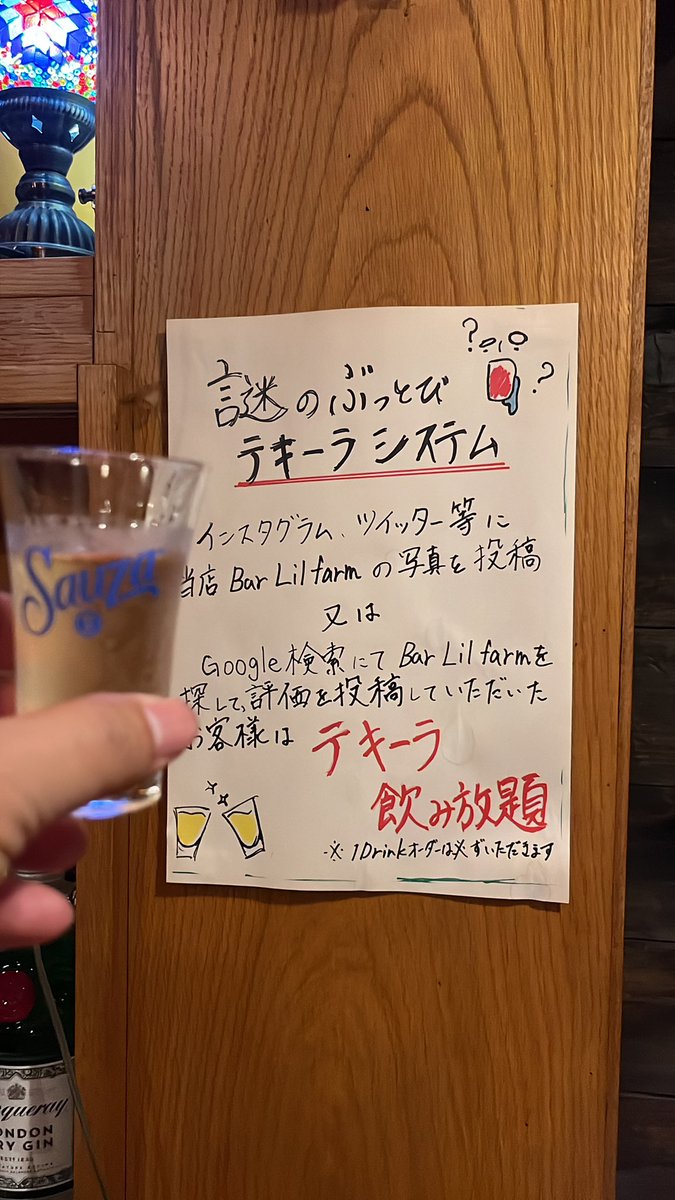 謎のぶっとび
テキーラシステム
インスタグラム、ツイッター等に
当店 Bar Lil farm の写真を投稿
又は
Google検索にて Bar Lil farmを
探して、評価を投稿していただいた
お客様は テキーラ
飲み放題
※ 1Drinkオーダーは必ずいただきます
Sauza
queray
ONDON
RY GIN